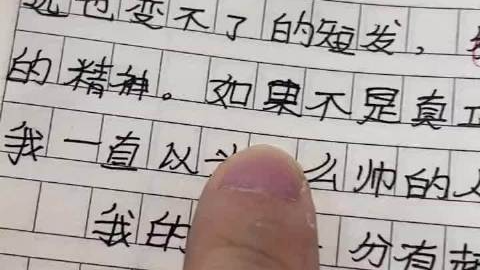 也变不了的短发，
的精神。如果不是真正
我一直以么帅的人
我的分有